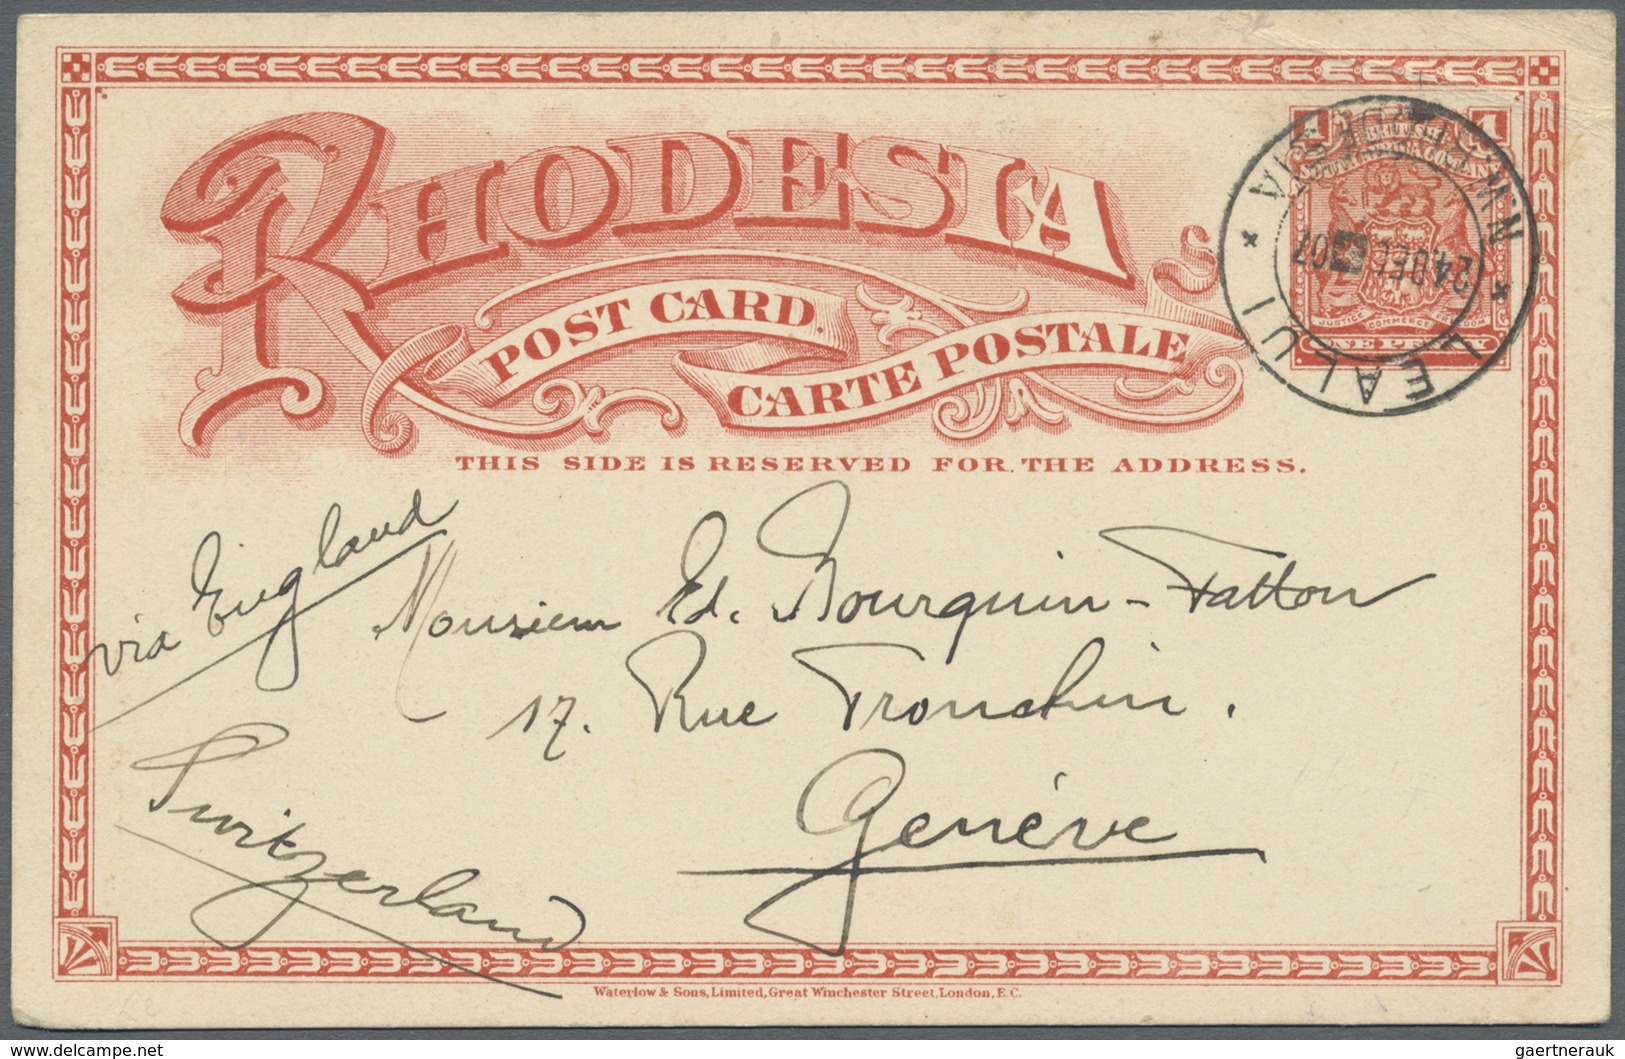 RHODESIA
POST CARD.
CARTE POSTALE
THIS SIDE IS RESERVED FOR THE ADDRESS.
1 1
BRITISH
SOUTH AFRICA COMPANY
JUSTICE COMMERCE FREEDOM
ONE PENNY
LEALUI
24 DEC 07
via England
Monsieur Ed. Bourquin-Fatton
17. Rue Tronchin.
Genève
Switzerland
Waterlow & Sons, Limited, Great Winchester Street, London, E.C.
delcampe.net
gaertnerauk